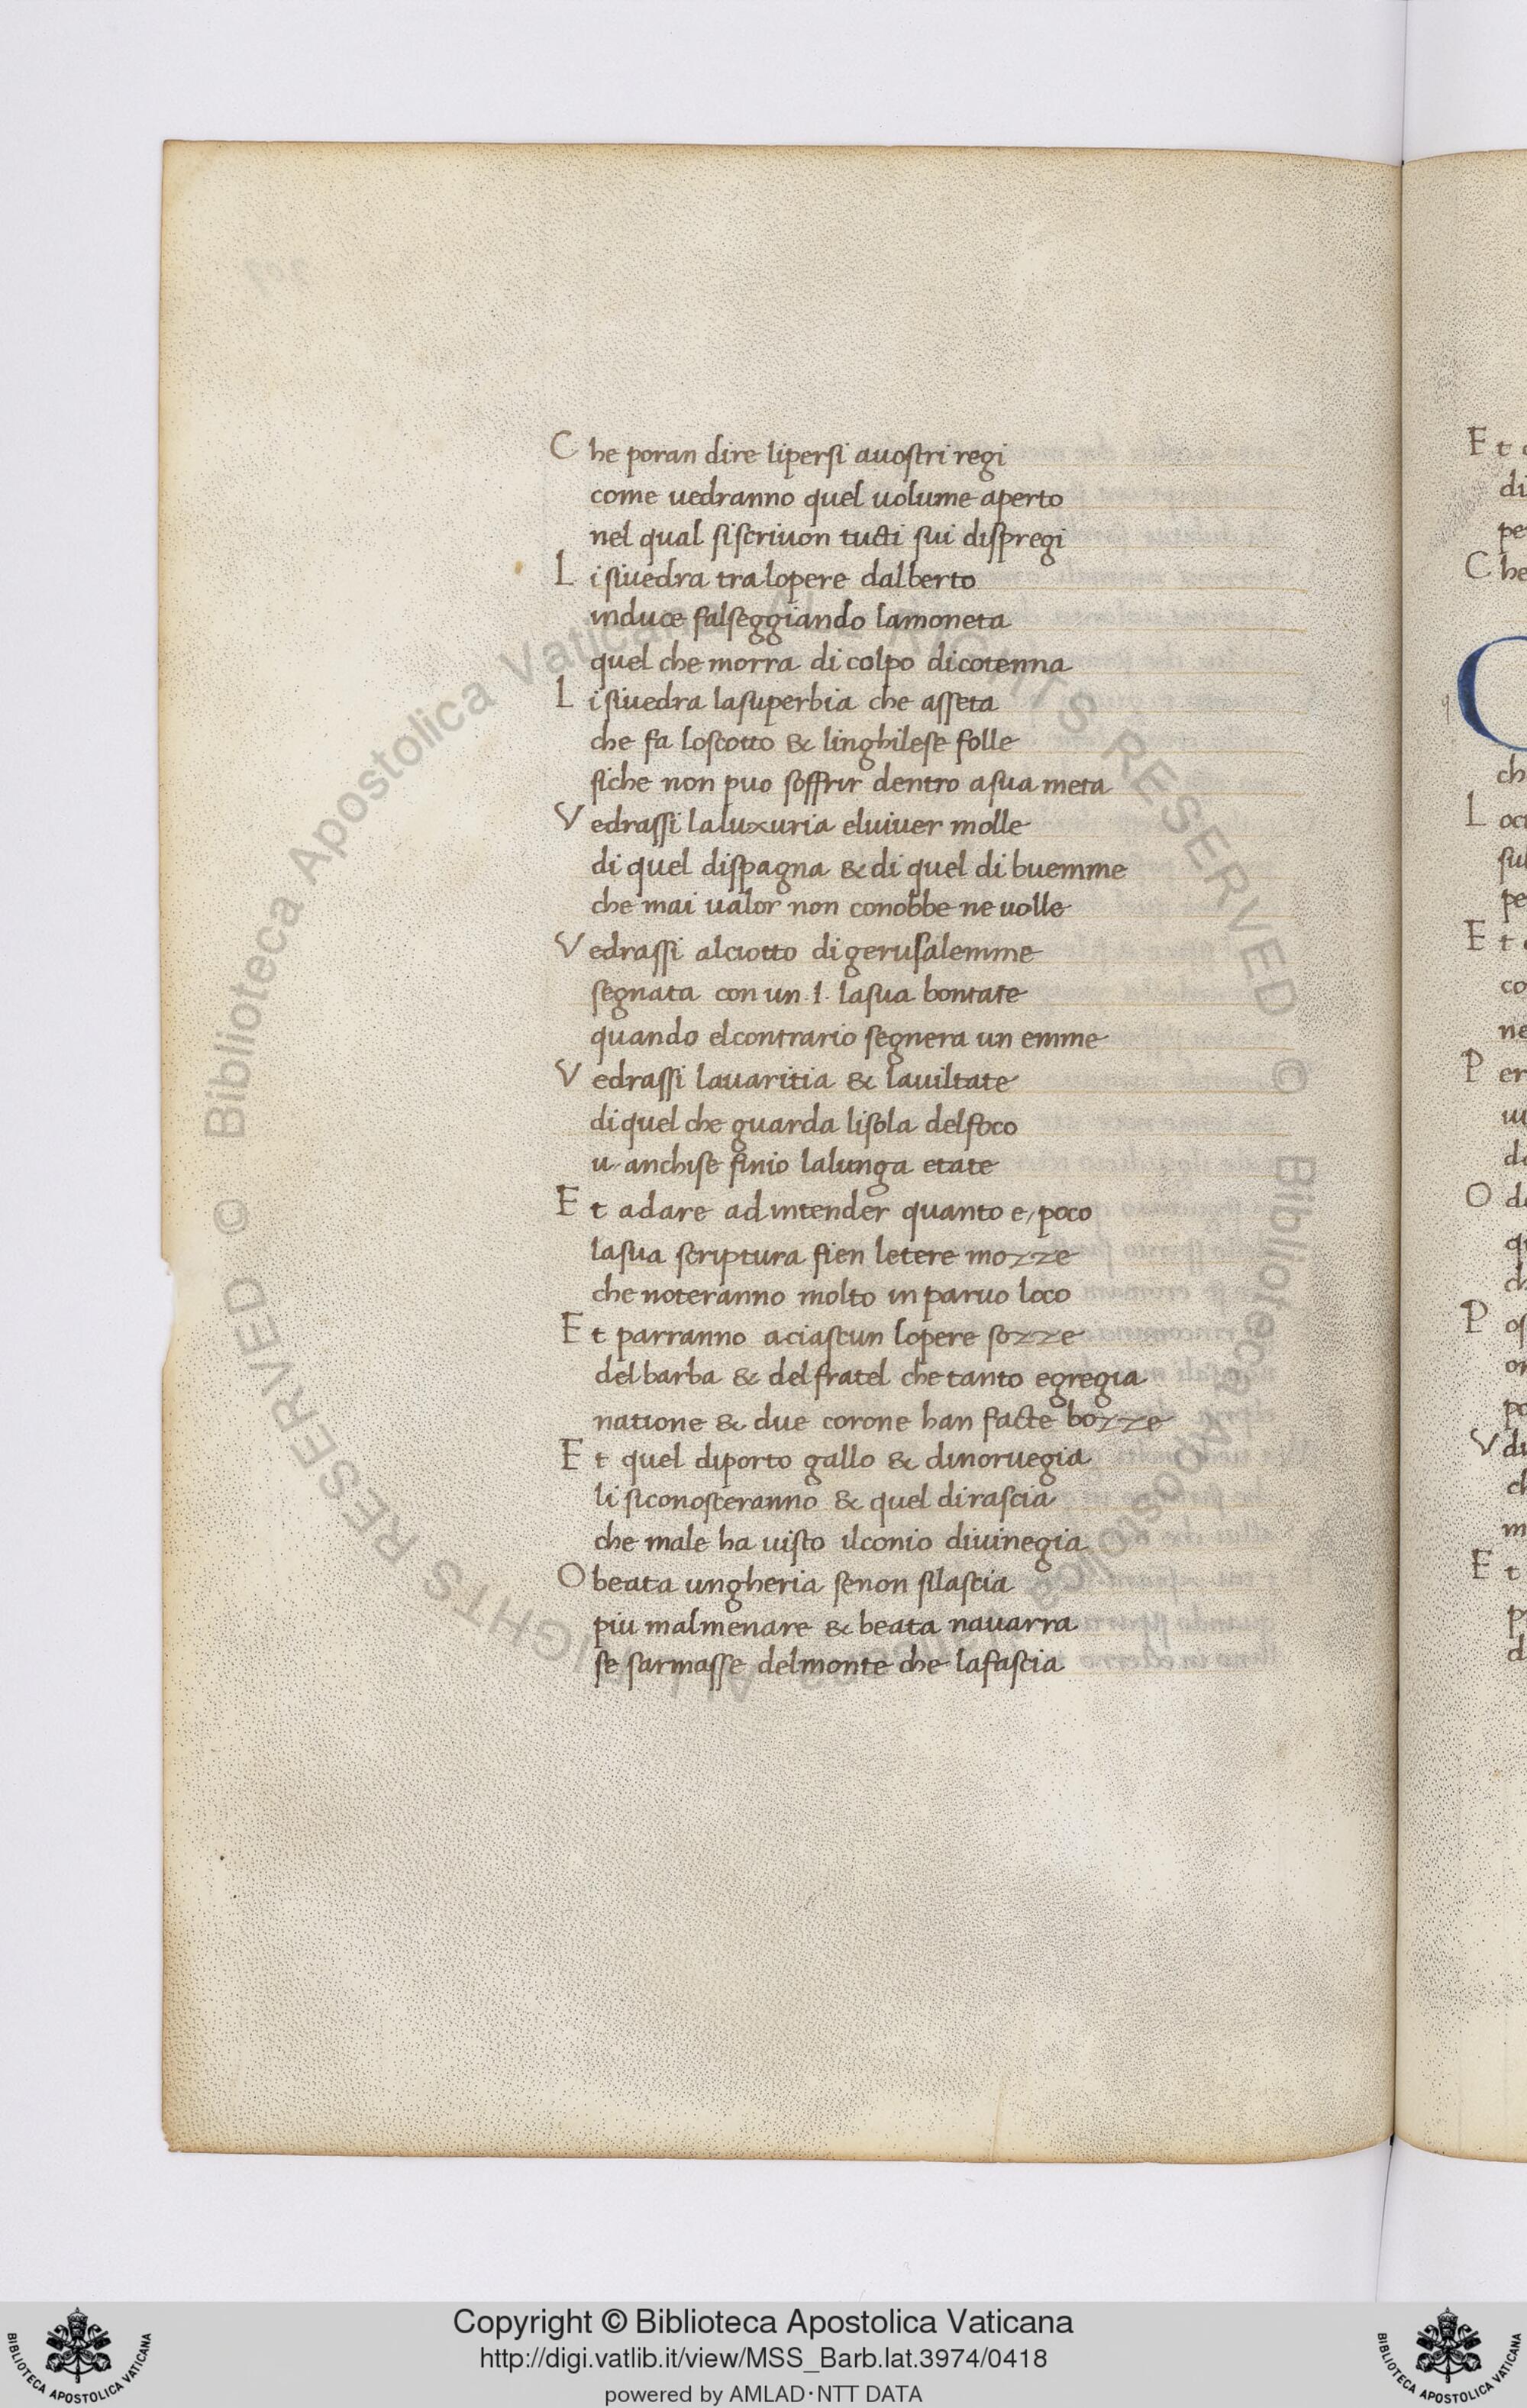 Che poran dire lipersi auostri regi
come uedranno quel uolume aperto
nel qual siscriuon tucti sui dispregi
Li siuedra tralopere dalberto
induce falseggiando lamoneta
quel che morra di colpo dicotenna
Li siuedra lasuperbia che asseta
che fa loscotto & linghilese folle
siche non puo soffrir dentro asua meta
Vedrassi laluxuria eluiuer molle
di quel dispagna & di quel di buemme
che mai ualor non conobbe ne uolle
Vedrassi alciotto di gerusalemme
segnata con un .I. lasua bontate
quando elcontrario segnera un emme
Vedrassi lauaritia & lauiltate
di quel che guarda lisola delfoco
u anchise finio lalunga etate
Et adare ad intender quanto e poco
lasua scriptura fien letere mozze
che noteranno molto in paruo loco
Et parranno aciascun lopere sozze
del barba & del fratel che tanto egregia
natione & due corone han facte bozze
Et quel diporto gallo & dinoruegia
li siconosceranno & quel dirascia
che male ha uisto ilconio diuinegia
O beata ungheria senon silascia
piu malmenare & beata nauarra
se sarmasse delmonte che lafascia
Copyright © Biblioteca Apostolica Vaticana
http://digi.vatlib.it/view/MSS_Barb.lat.3974/0418
powered by AMLAD·NTT DATA